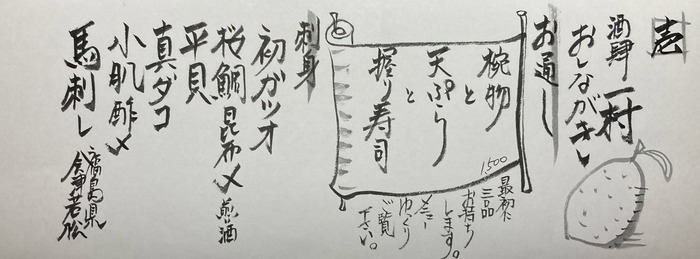 壱
酒肆 一村
おしながき
お通し
椀物
と
天ぷら
と
握り寿司
1,500
最初に
三品
お持ち
します。
メニュー
ゆっくり
ご覧
下さい。
刺身
初ガツオ
桜鯛昆布〆 煎酒
平貝
真ダコ
小肌酢〆
馬刺し 福島県会津若松